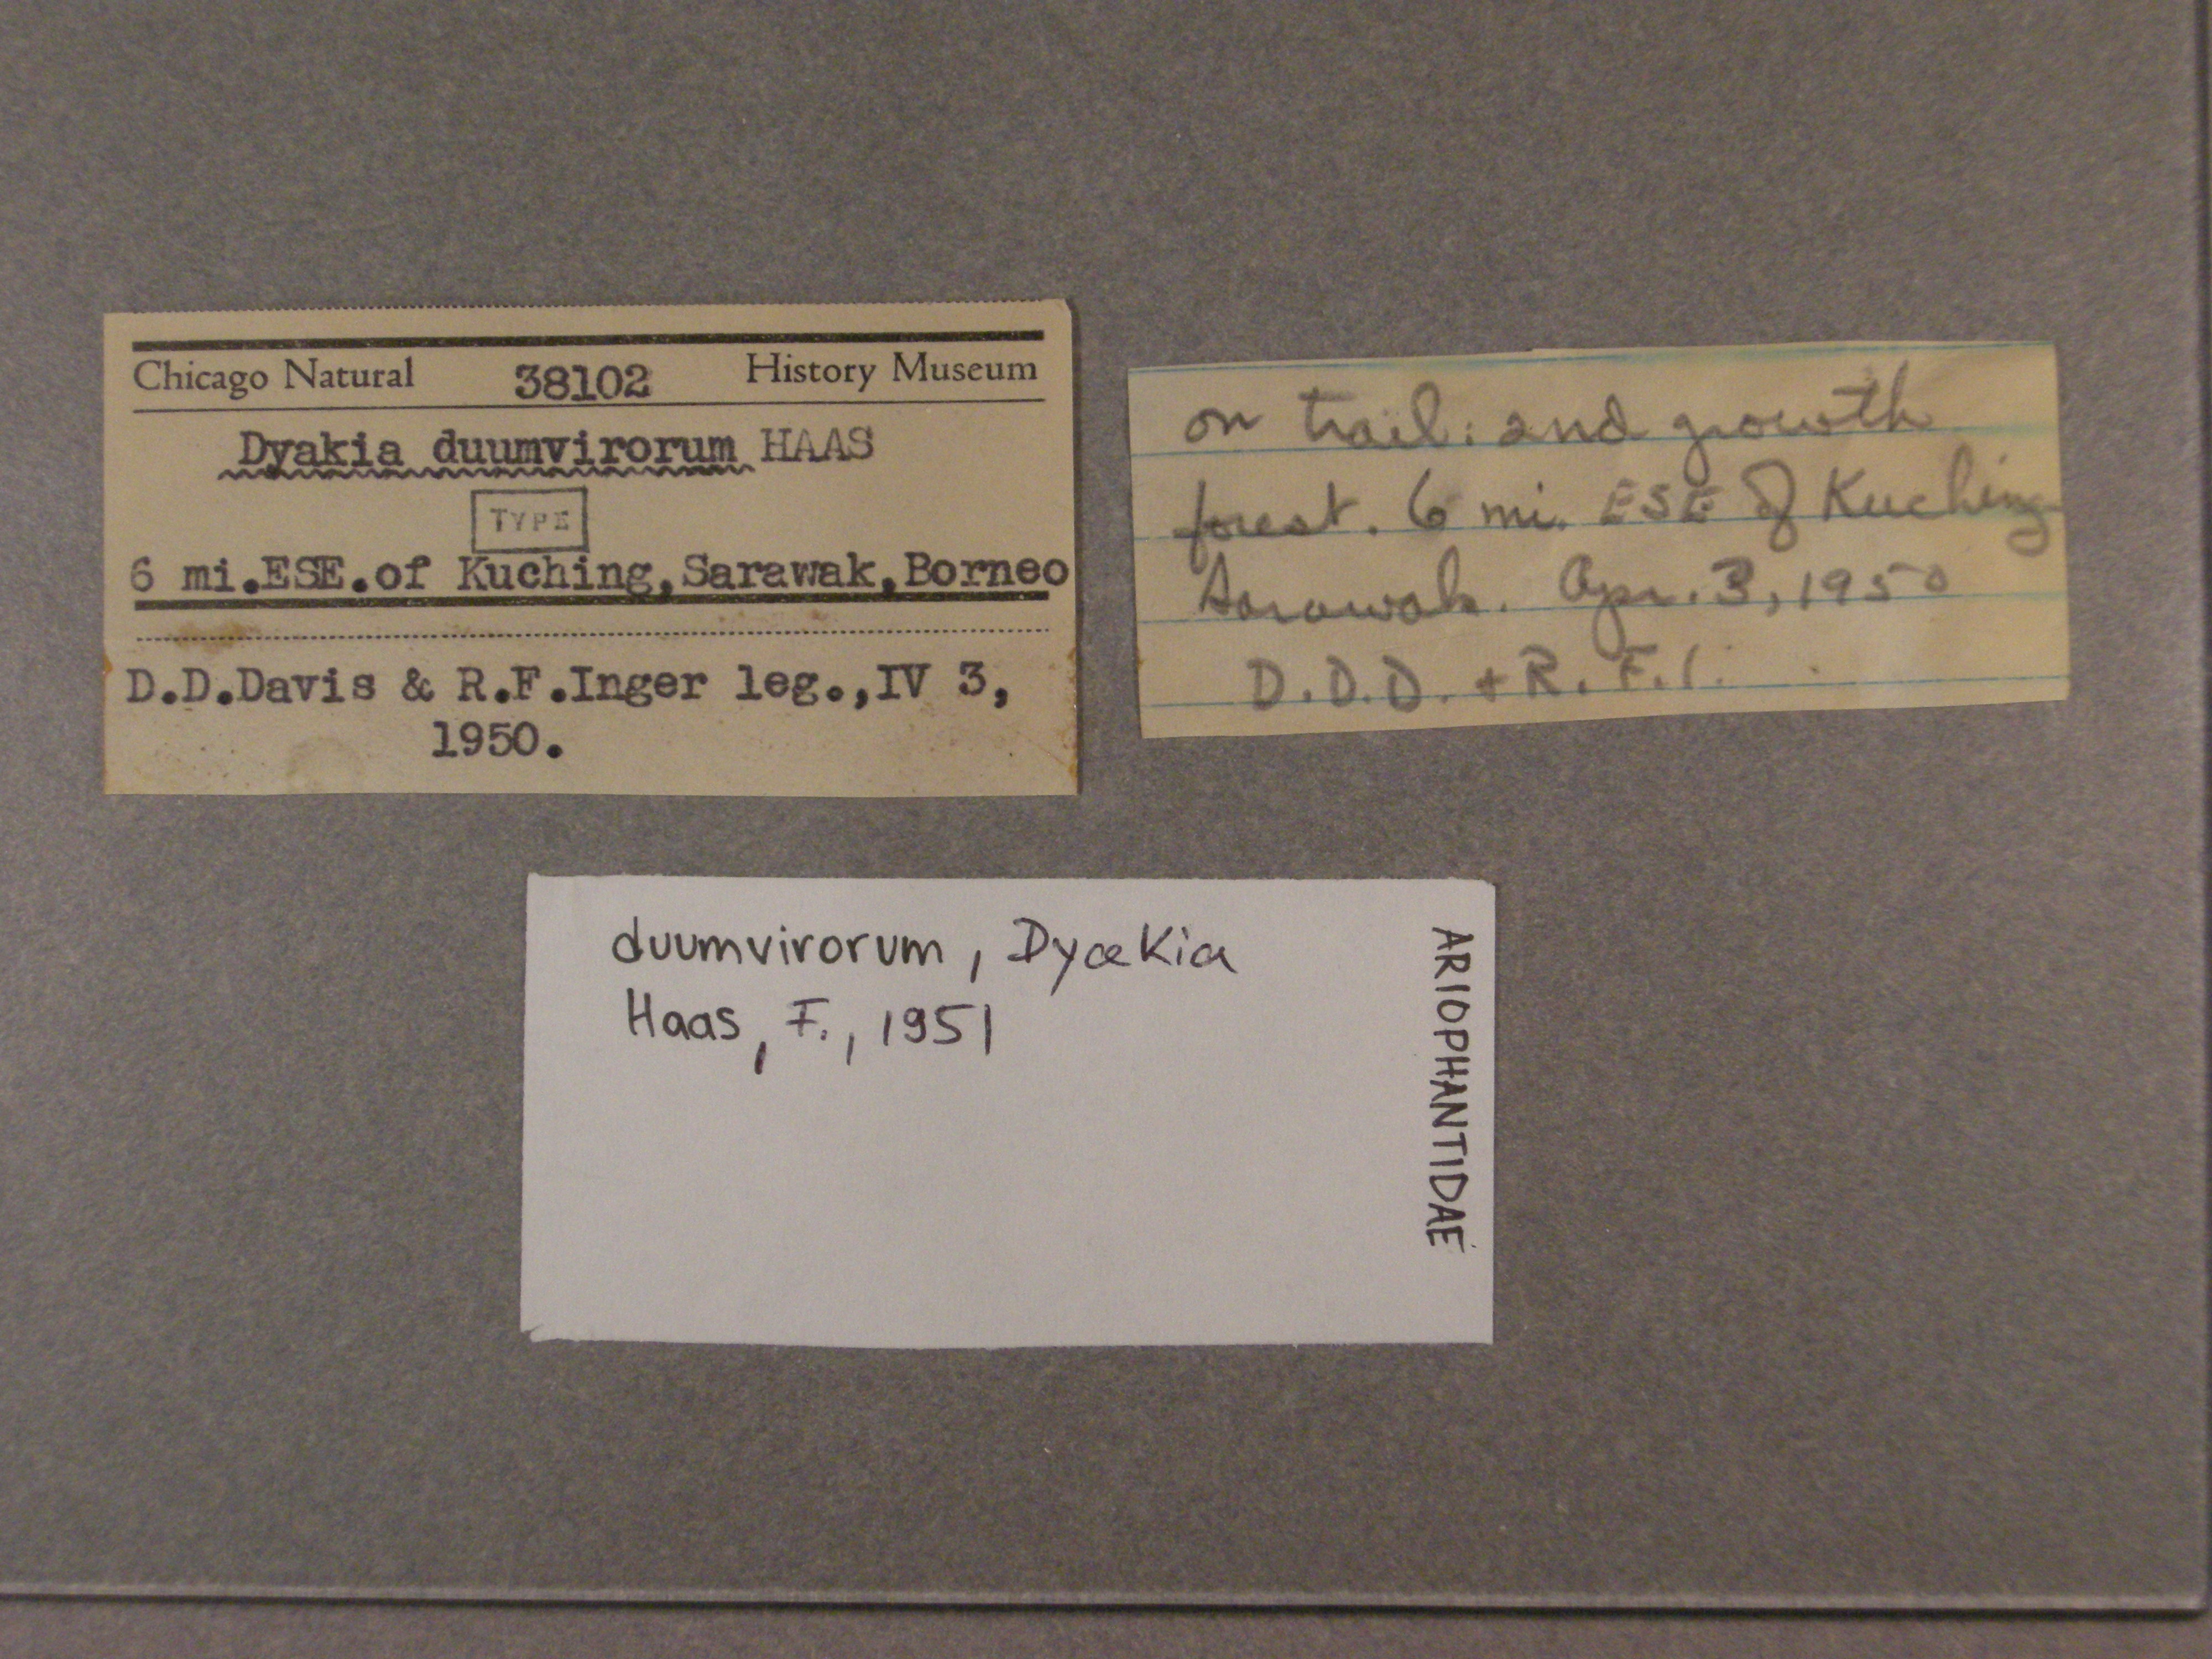 Chicago Natural 38102 History Museum
Dyakia duumvirorum HAAS
TYPE
6 mi.ESE.of Kuching,Sarawak,Borneo
D.D.Davis & R.F.Inger leg.,IV 3,
1950.
on trail: 2nd growth
forest. 6 mi. ESE of Kuching
Sarawak. Apr. 3, 1950
D.D.D. + R.F.I.
duumvirorum, Dyakia
Haas, F., 1951
ARIOPHANTIDAE